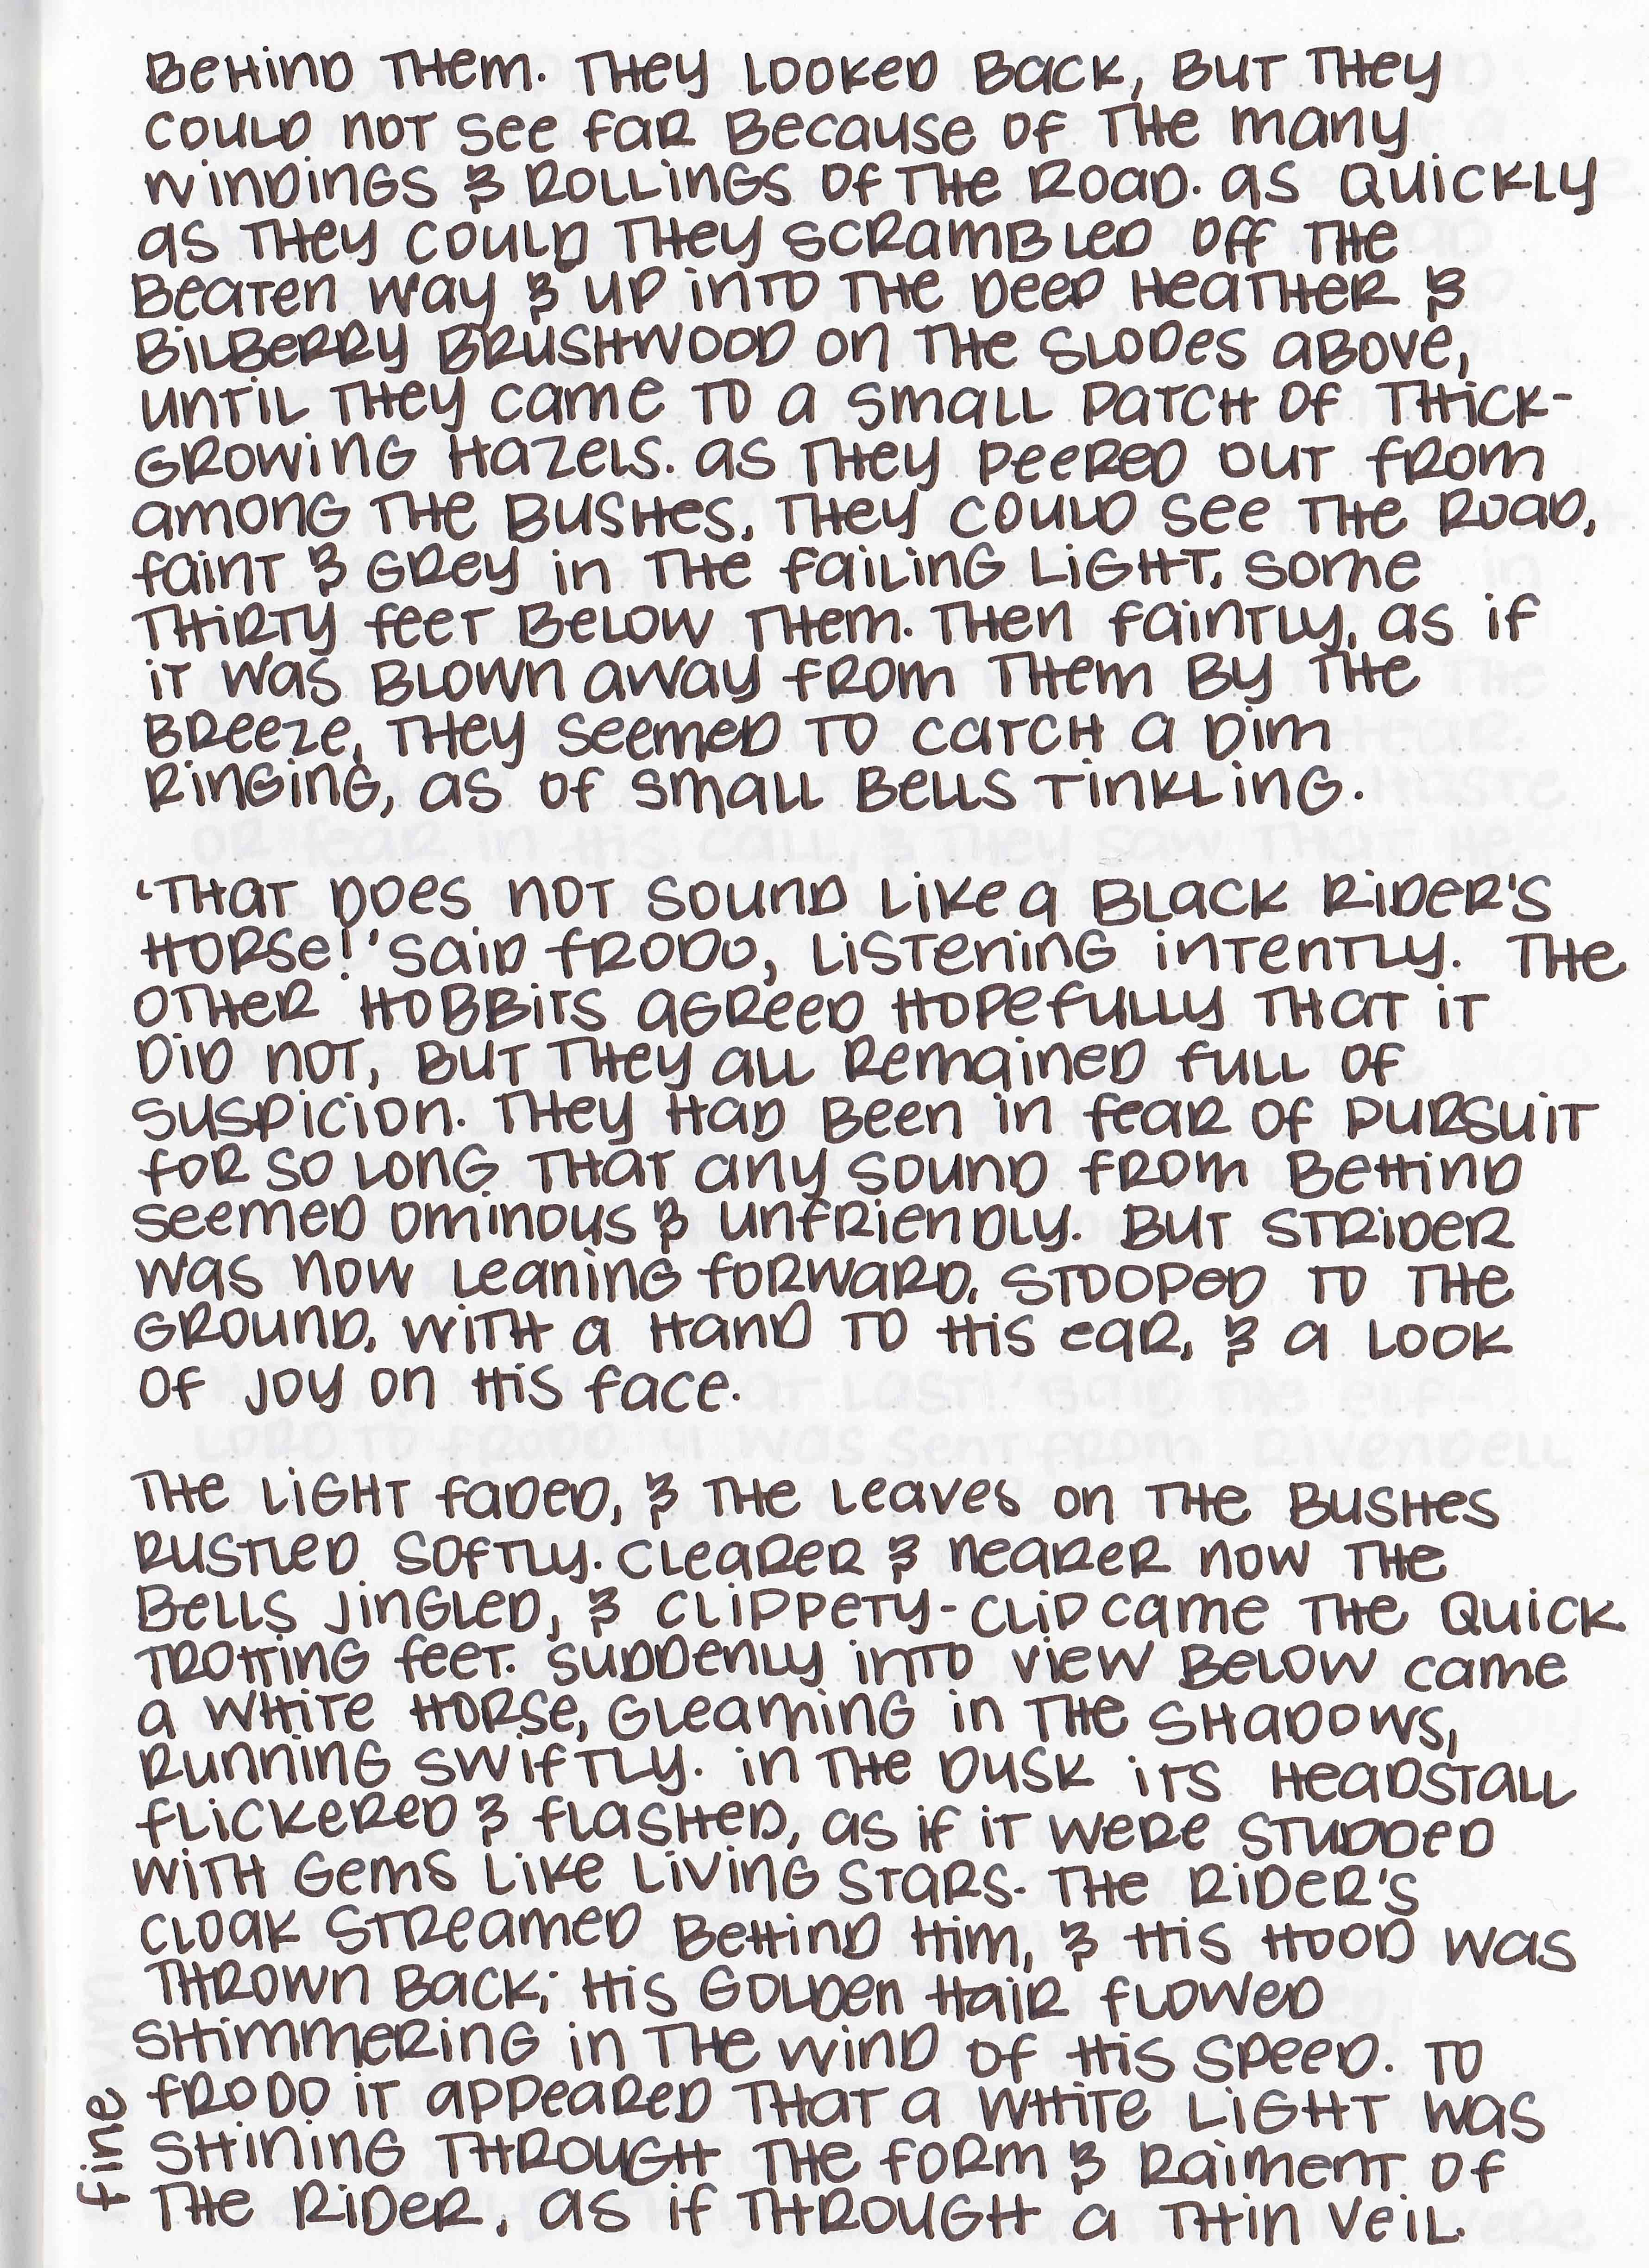 Behind them. They looked back, but they
could not see far because of the many
windings & rollings of the Road. as quickly
as they could they scrambled off the
beaten way & up into the deep heather &
bilberry brushwood on the slopes above,
until they came to a small patch of thick-
growing hazels. as they peered out from
among the bushes, they could see the Road,
faint & grey in the failing light, some
thirty feet below them. Then faintly, as if
it was blown away from them by the
breeze, they seemed to catch a dim
ringing, as of small bells tinkling.
'That does not sound like a Black Rider's
horse!' said Frodo, listening intently. The
other hobbits agreed hopefully that it
did not, but they all remained full of
suspicion. They had been in fear of pursuit
for so long that any sound from behind
seemed ominous & unfriendly. But Strider
was now leaning forward, stooped to the
ground, with a hand to his ear, & a look
of joy on his face.
The light faded, & the leaves on the bushes
rustled softly. Clearer & nearer now the
bells jingled, & clippety-clip came the quick
trotting feet. Suddenly into view below came
a white horse, gleaming in the shadows,
running swiftly. in the dusk its headstall
flickered & flashed, as if it were studded
with gems like living stars. The rider's
cloak streamed behind him, & his hood was
thrown back; his golden hair flowed
shimmering in the wind of his speed. To
Frodo it appeared that a white light was
shining through the form & raiment of
the rider, as if through a thin veil.
fine